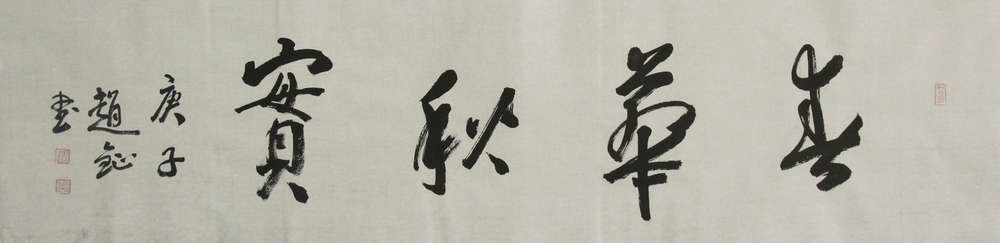 春華秋實
庚子
趙鉍
書